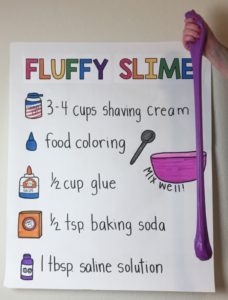 FLUFFY SLIME
3-4 cups shaving cream
food coloring
½ cup glue
Mix well!
½ tsp baking soda
1 tbsp saline solution